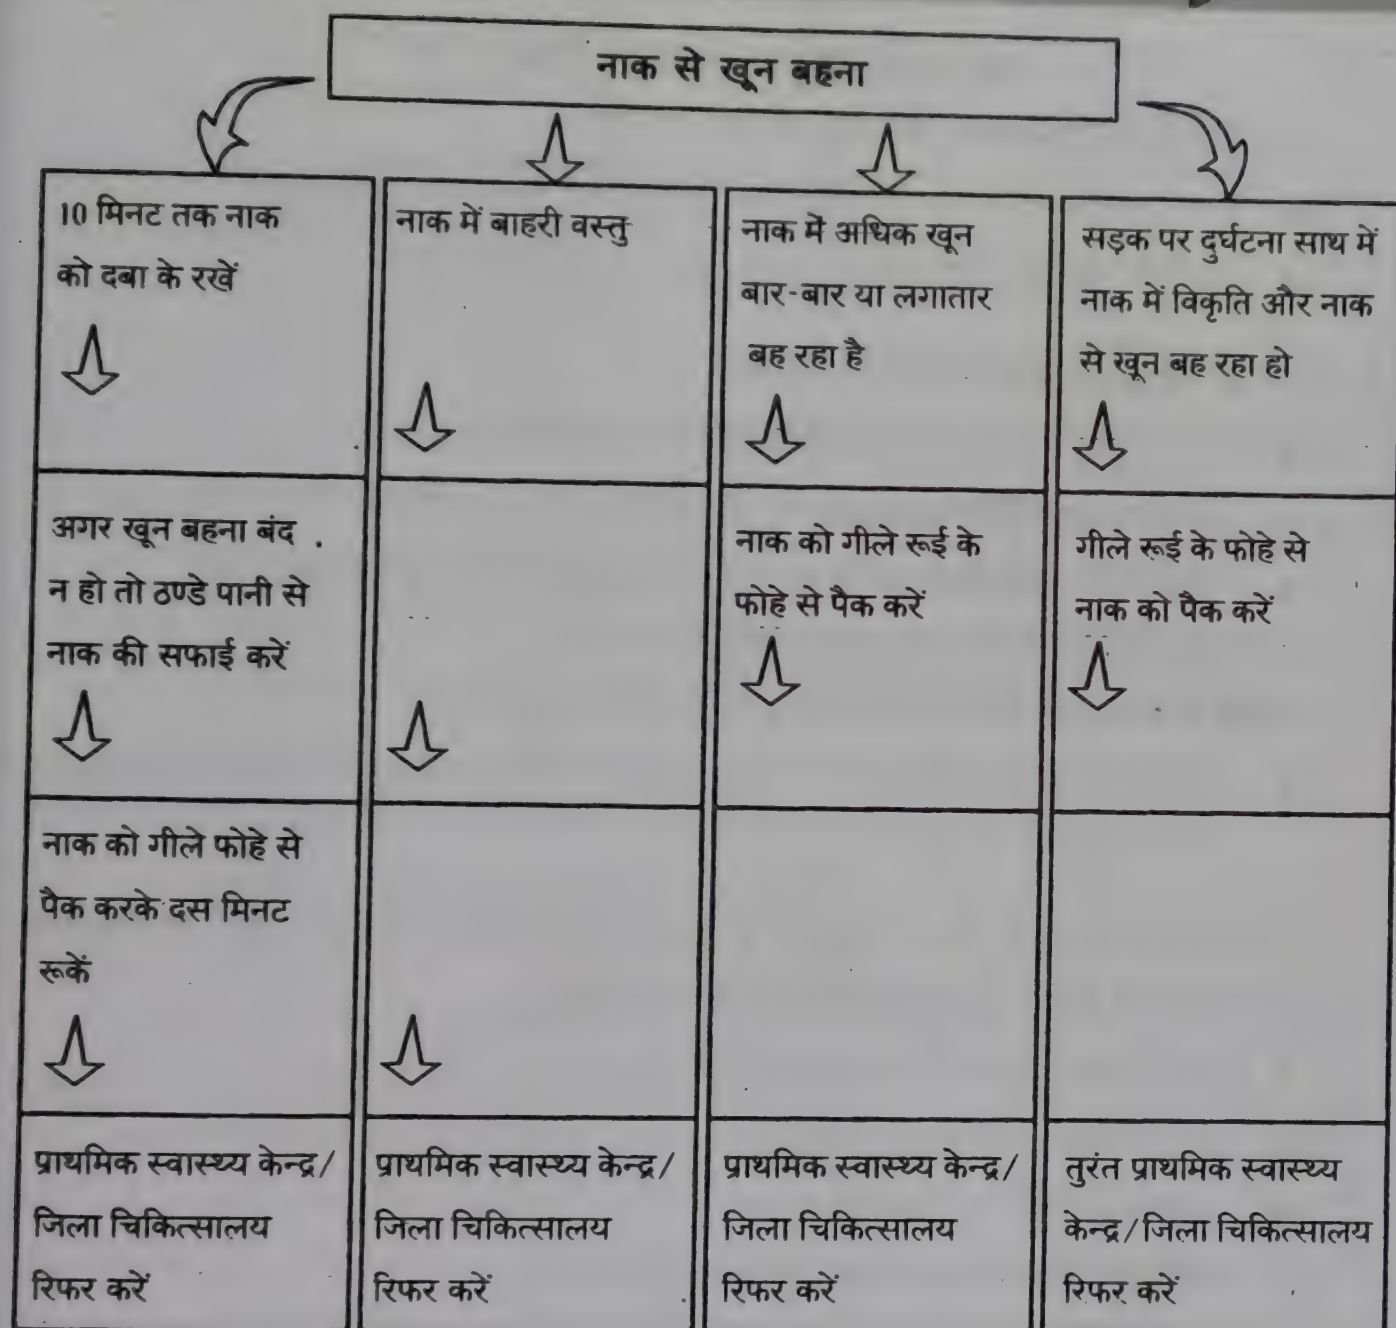 नाक से खून बहना
10 मिनट तक नाक
को दबा के रखें
अगर खून बहना बंद
न हो तो ठण्डे पानी से
नाक की सफाई करें
नाक को गीले फोहे से
पैक करके दस मिनट
रूकें
प्राथमिक स्वास्थ्य केन्द्र/
जिला चिकित्सालय
रिफर करें
नाक में बाहरी वस्तु
प्राथमिक स्वास्थ्य केन्द्र/
जिला चिकित्सालय
रिफर करें
नाक में अधिक खून
बार-बार या लगातार
बह रहा है
नाक को गीले रूई के
फोहे से पैक करें
प्राथमिक स्वास्थ्य केन्द्र/
जिला चिकित्सालय
रिफर करें
सड़क पर दुर्घटना साथ में
नाक में विकृति और नाक
से खून बह रहा हो
गीले रूई के फोहे से
नाक को पैक करें
तुरंत प्राथमिक स्वास्थ्य
केन्द्र/जिला चिकित्सालय
रिफर करें